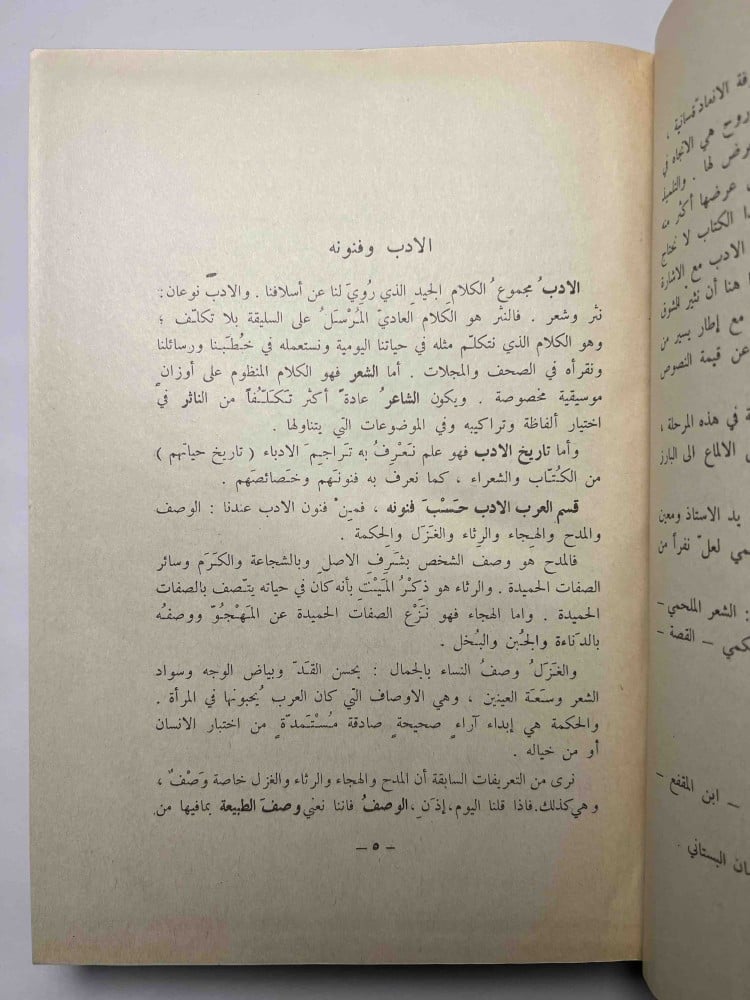 الادب وفنونه
الادبُ مجموعُ الكلامِ الجيدِ الذي رُوِيَ لنا عن أسلافنا . والادبُ نوعان :
نثر وشعر . فالنثر هو الكلام العاديّ المُرْسَلُ على السليقة بلا تكلّف ؛
وهو الكلام الذي نتكلّم مثله في حياتنا اليومية ونستعمله في خُطَبنا ورسائلنا
ونقرأه في الصحف والمجلات . أما الشعر فهو الكلام المنظوم على أوزانٍ
موسيقية مخصوصة . ويكون الشاعرُ عادةً أكثر تَكَلُّفاً من الناثر في
اختيار ألفاظة وتراكيبه وفي الموضوعات التي يتناولها .
وأما تاريخ الادب فهو علم نَعْرِفُ به تَراجيمَ الادباء ( تاريخ حياتهم )
من الكُتّاب والشعراء ، كما نعرف به فنونَهم وخَصائصَهم .
قسم العرب الادب حَسْبَ فنونه ، فمِنْ فنون الادب عندنا : الوصف
والمدح والهِجاء والرِثاء والغَزَل والحِكمة .
فالمدح هو وصف الشخص بشَرَفِ الاصلِ وبالشجاعة والكَرَم وسائر
الصفات الحميدة . والرثاء هو ذكْرُ المَيْتِ بأنه كان في حياته يتّصف بالصفات
الحميدة . واما الهجاء فهو نَزْع الصفات الحميدة عن المَهْجُوّ ووصفُه
بالدَناءة والجُبن والبُخل .
والغَزَلُ وصفُ النساء بالجمال : بحسن القَدّ وبياض الوجه وسواد
الشعر وسَعَة العينين ، وهي الاوصاف التي كان العرب يُحبونها في المرأة .
والحكمة هي إبداء آراءٍ صحيحةٍ صادقة مُسْتَمدّةٍ من اختبار الانسان
أو من خياله .
نرى من التعريفات السابقة أن المدح والهجاء والرثاء والغزل خاصة وَصْفٌ ،
وهي كذلك. فاذا قلنا اليوم، إذَنِ، الوصفُ فاننا نعني وصفَ الطبيعة بمافيها من
– ٥ –
روح هي الاتجاه في
عرض لها . والتلميذ
عرضها أكثر منه
الكتاب لا نحتاج
الادب مع الاشارة
هنا أن نثير الشوق
مع إطار يسير من
عن قيمة النصوص
في هذه المرحلة ،
الالماع الى البارز
يد الاستاذ ومعين
لعلّ نفراً من
: الشعر الملحمي –
– القصة –
– ابن المقفع –
البستاني .